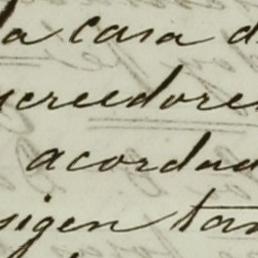 la casa d
acreedores
acordad
sigen tan